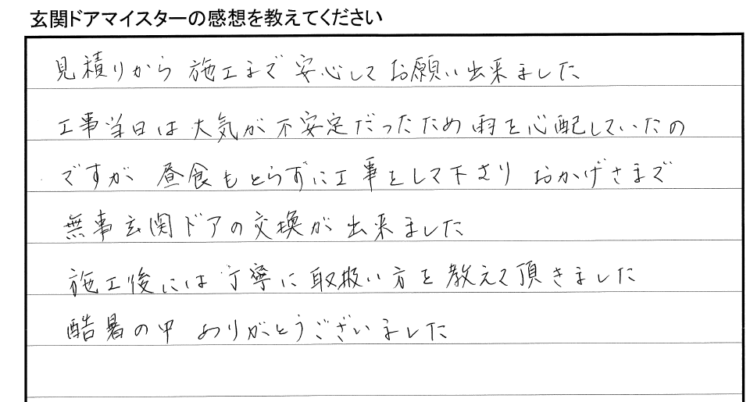 玄関ドアマイスターの感想を教えてください
見積りから施工まで安心してお願い出来ました
工事当日は大気が不安定だったため雨を心配していたの
ですが昼食もとらずに工事をして下さりおかげさまで
無事玄関ドアの交換が出来ました
施工後には丁寧に取扱い方を教えて頂きました
酷暑の中ありがとうございました